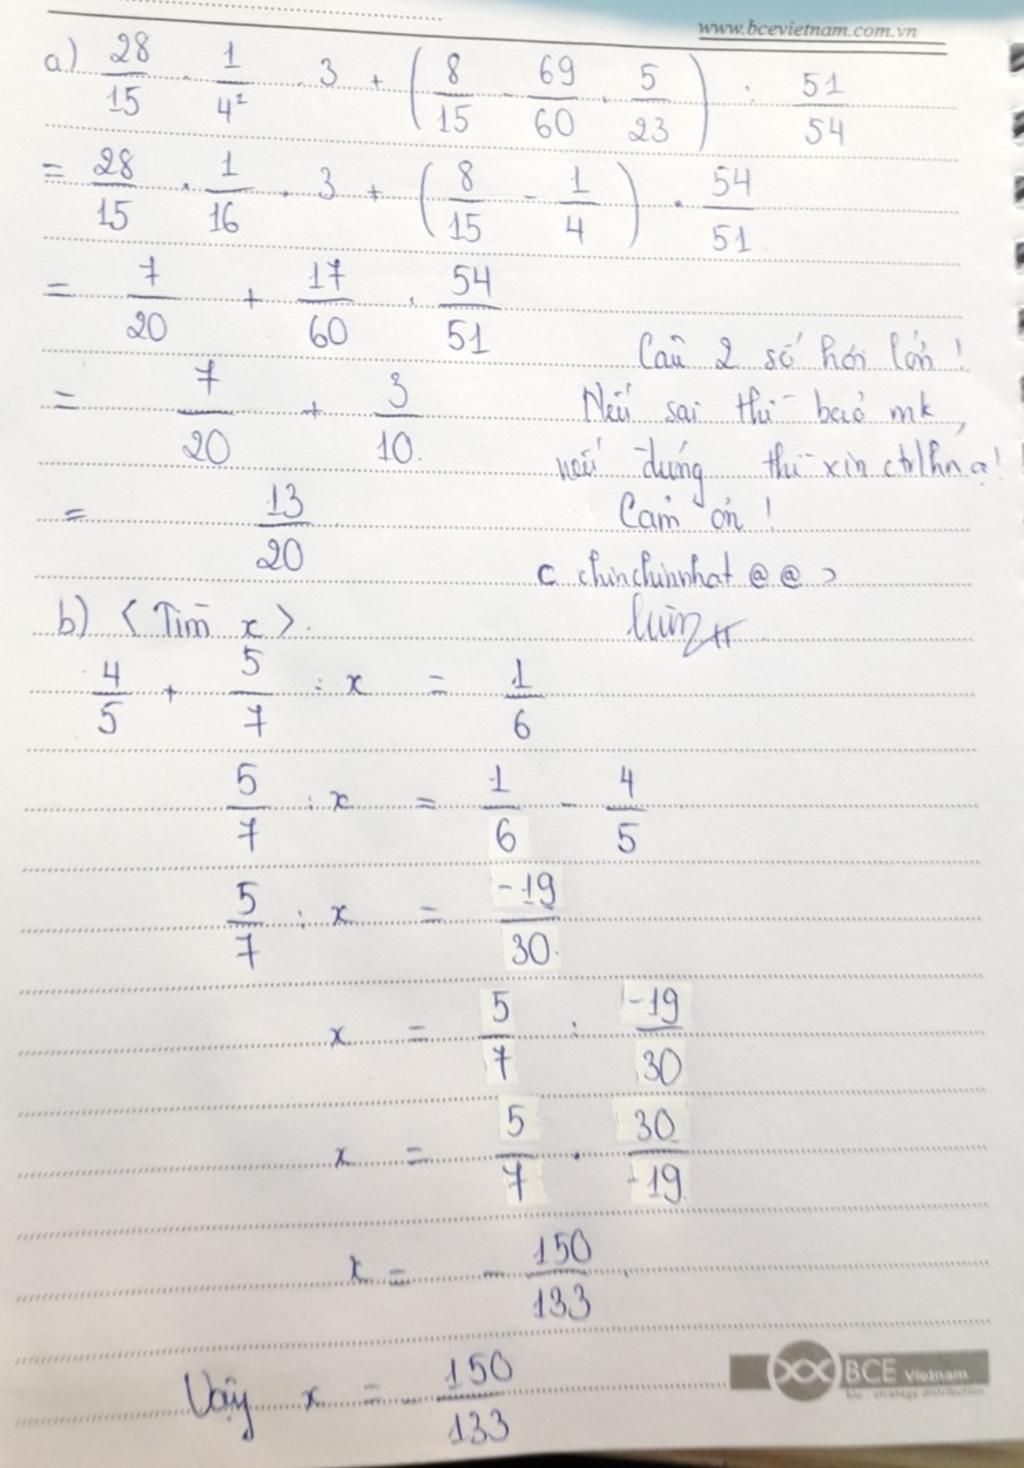 www.bcevietnam.com.vn
a) 28/15 . 1/4² . 3 + (8/15 - 69/60 . 5/23) : 51/54
= 28/15 . 1/16 . 3 + (8/15 - 1/4) . 54/51
= 7/20 + 17/60 . 54/51
= 7/20 + 3/10.
= 13/20
Câu 2 số hơi lớn!
Nếu sai thì báo mk,
nếu đúng thì xin ctrlhn ạ!
Cảm ơn!
c chinchinnhat @@ >
b) <Tìm x>.
4/5 + 5/7 : x = 1/6
5/7 : x = 1/6 - 4/5
5/7 : x = -19/30.
x = 5/7 : -19/30
x = 5/7 . 30/-19.
x = - 150/133.
Vậy x = - 150/133
BCE Vietnam